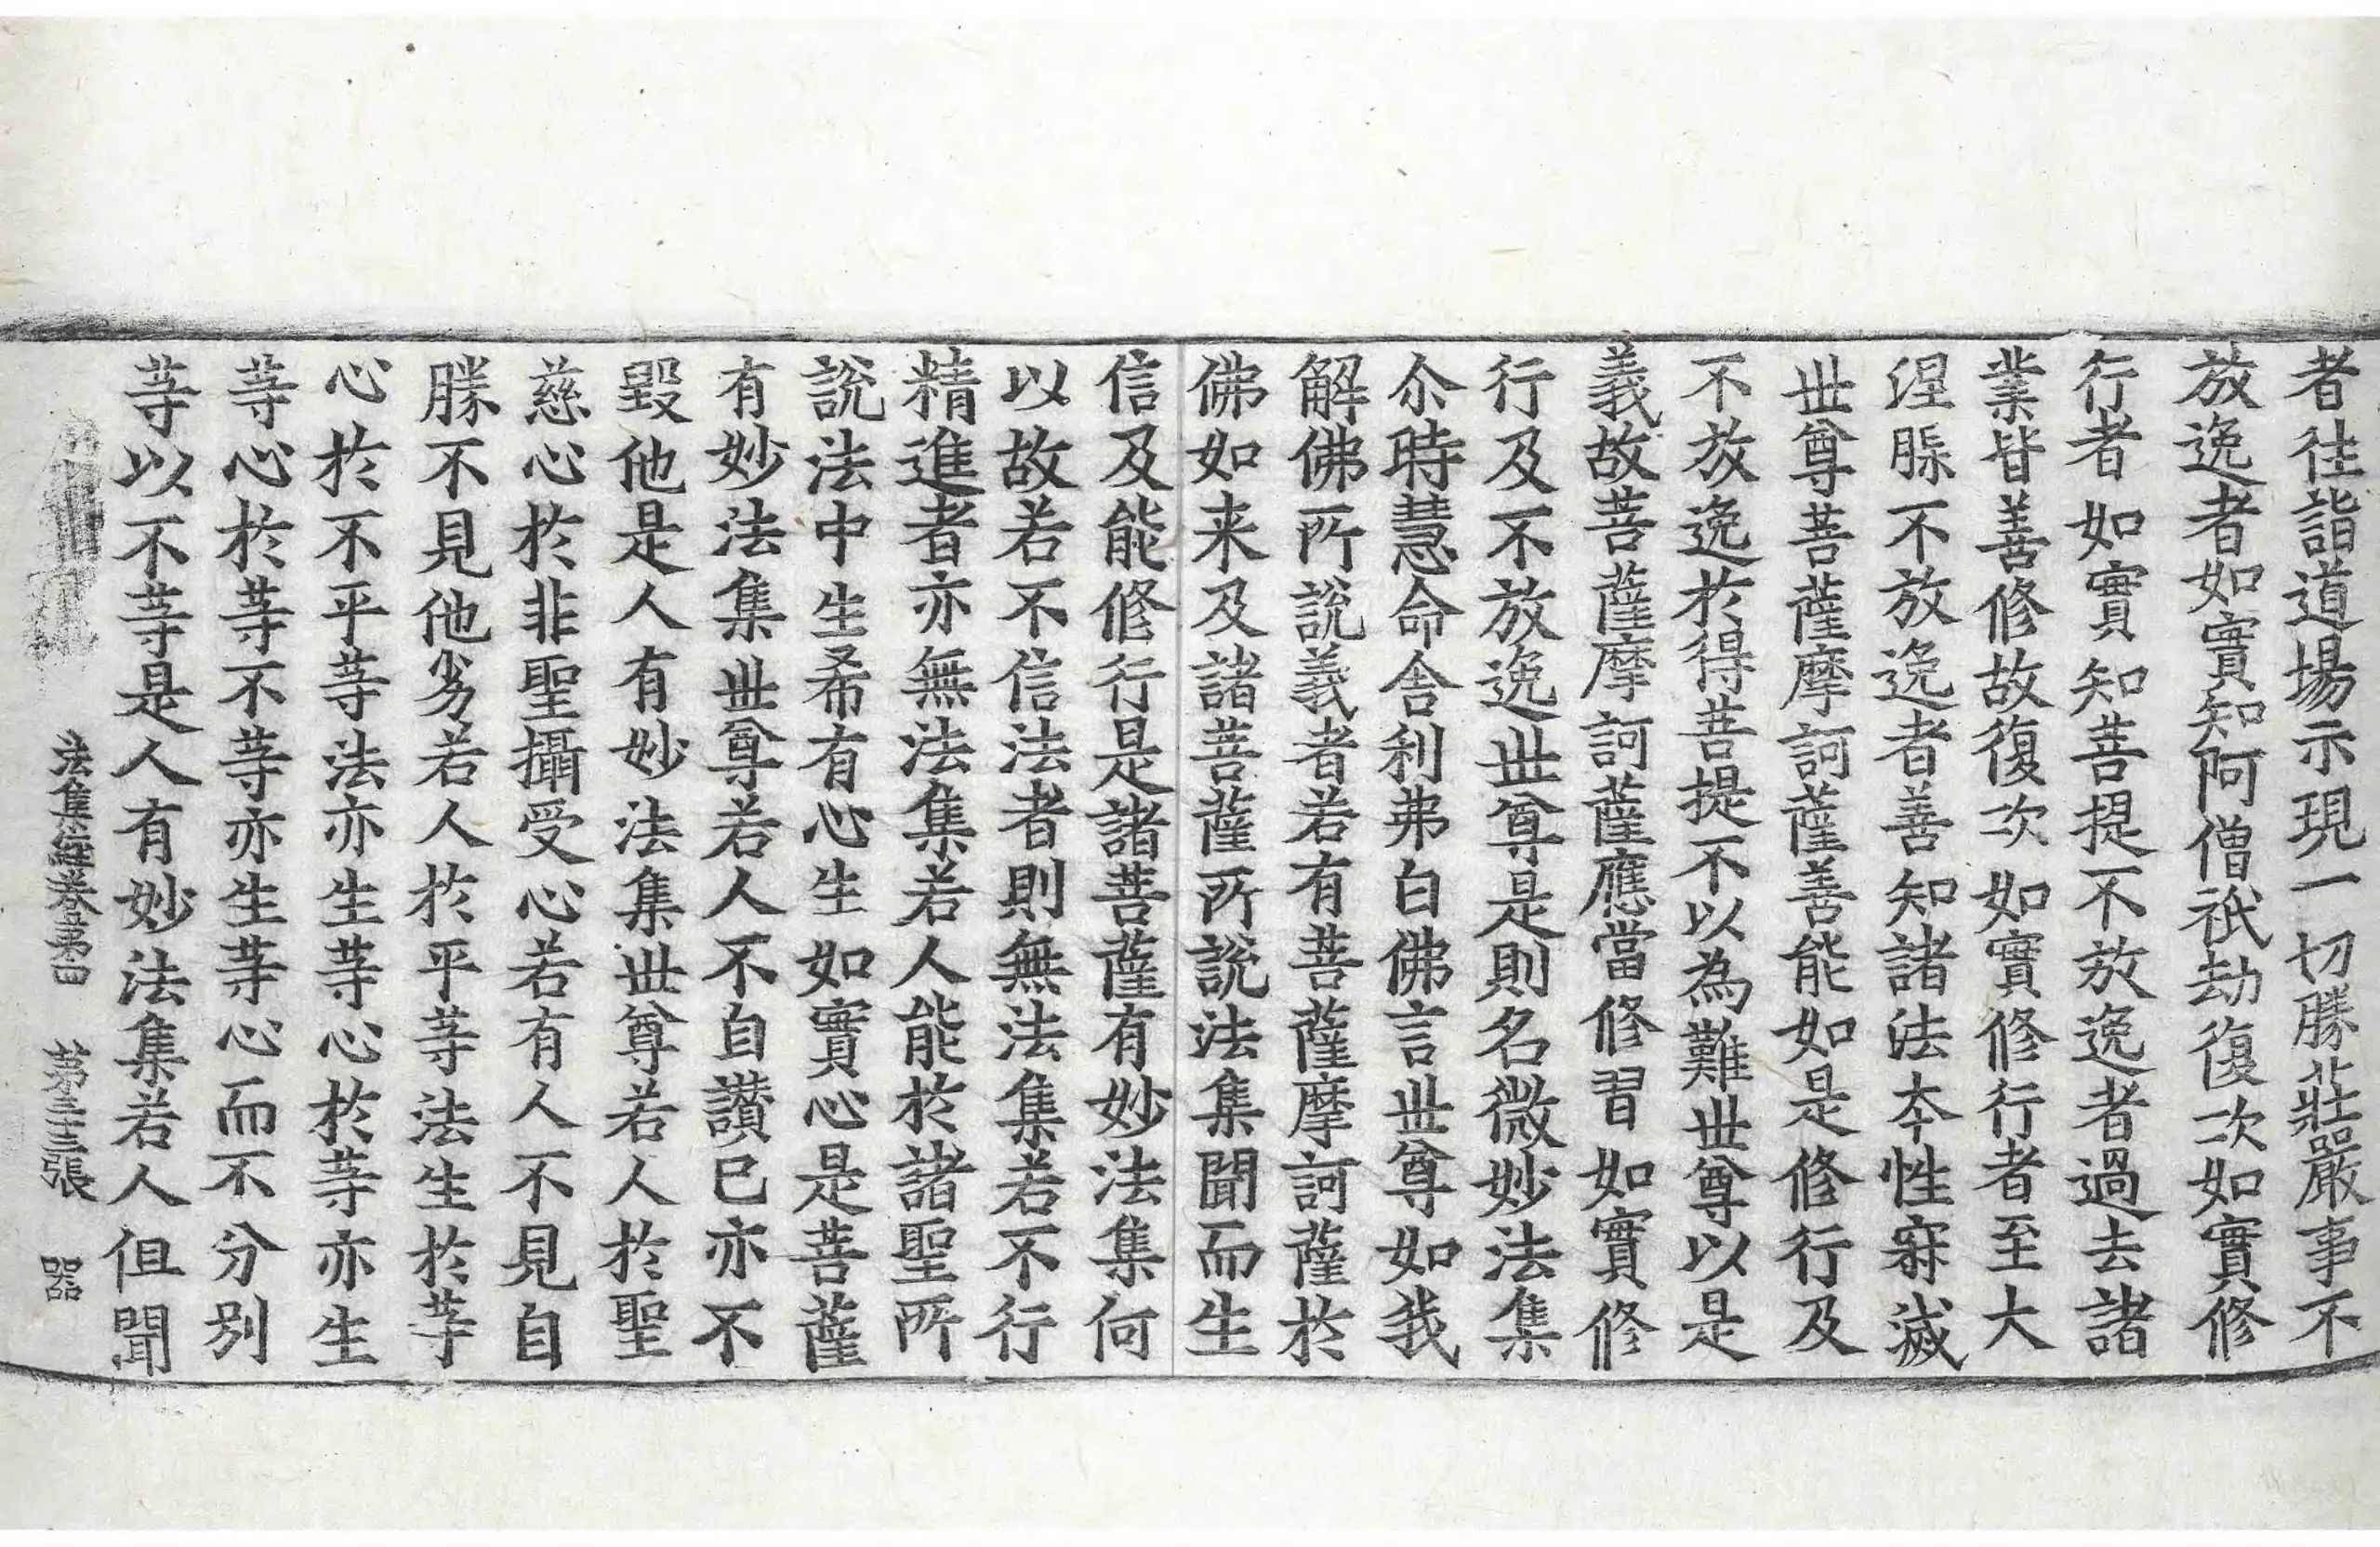 者往詣道場示現一切勝莊嚴事不
放逸者如實知阿僧祇劫復次如實修
行者如實知菩提不放逸者過去諸
業皆善修故復次如實修行者至大
涅槃不放逸者善知諸法夲性寂滅
丗尊菩薩摩訶薩善能如是修行及
不放逸於得菩提不以為難丗尊以是
義故菩薩摩訶薩應當修習如實修
行及不放逸丗尊是則名微妙法集
尒時慧命舍利弗白佛言丗尊如我
解佛所說義者若有菩薩摩訶薩於
佛如来及諸菩薩所說法集聞而生
信及能修行是諸菩薩有妙法集何
以故若不信法者則無法集若不行
精進者亦無法集若人能於諸聖所
說法中生希有心生如實心是菩薩
有妙法集丗尊若人不自讃已亦不
毀他是人有妙法集丗尊若人於聖
慈心於非聖攝受心若有人不見自
勝不見他劣若人於平等法生於等
心於不平等法亦生等心於等亦生
等心於等不等亦生等心而不分別
等以不等是人有妙法集若人但聞
法集經卷苐四　苐三十三張　器